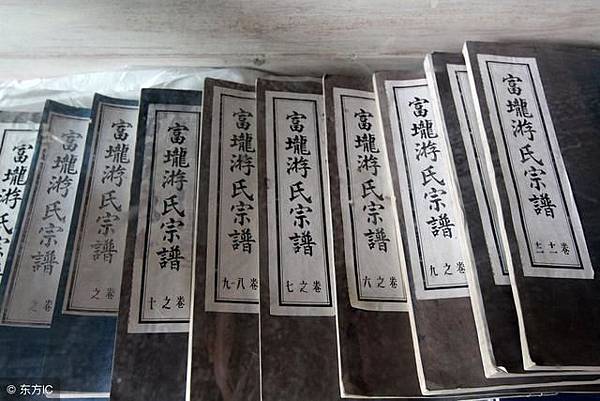 富壠游氏
富壠游氏宗譜
卷之
富壠游氏宗譜
卷之
富壠游氏宗譜
卷之十
富壠游氏宗譜
卷八·九
富壠游氏宗譜
卷之七
富壠游氏宗譜
卷之六
富壠游氏宗譜
卷之九
富壠游氏宗譜
卷十一十二
© 东方IC